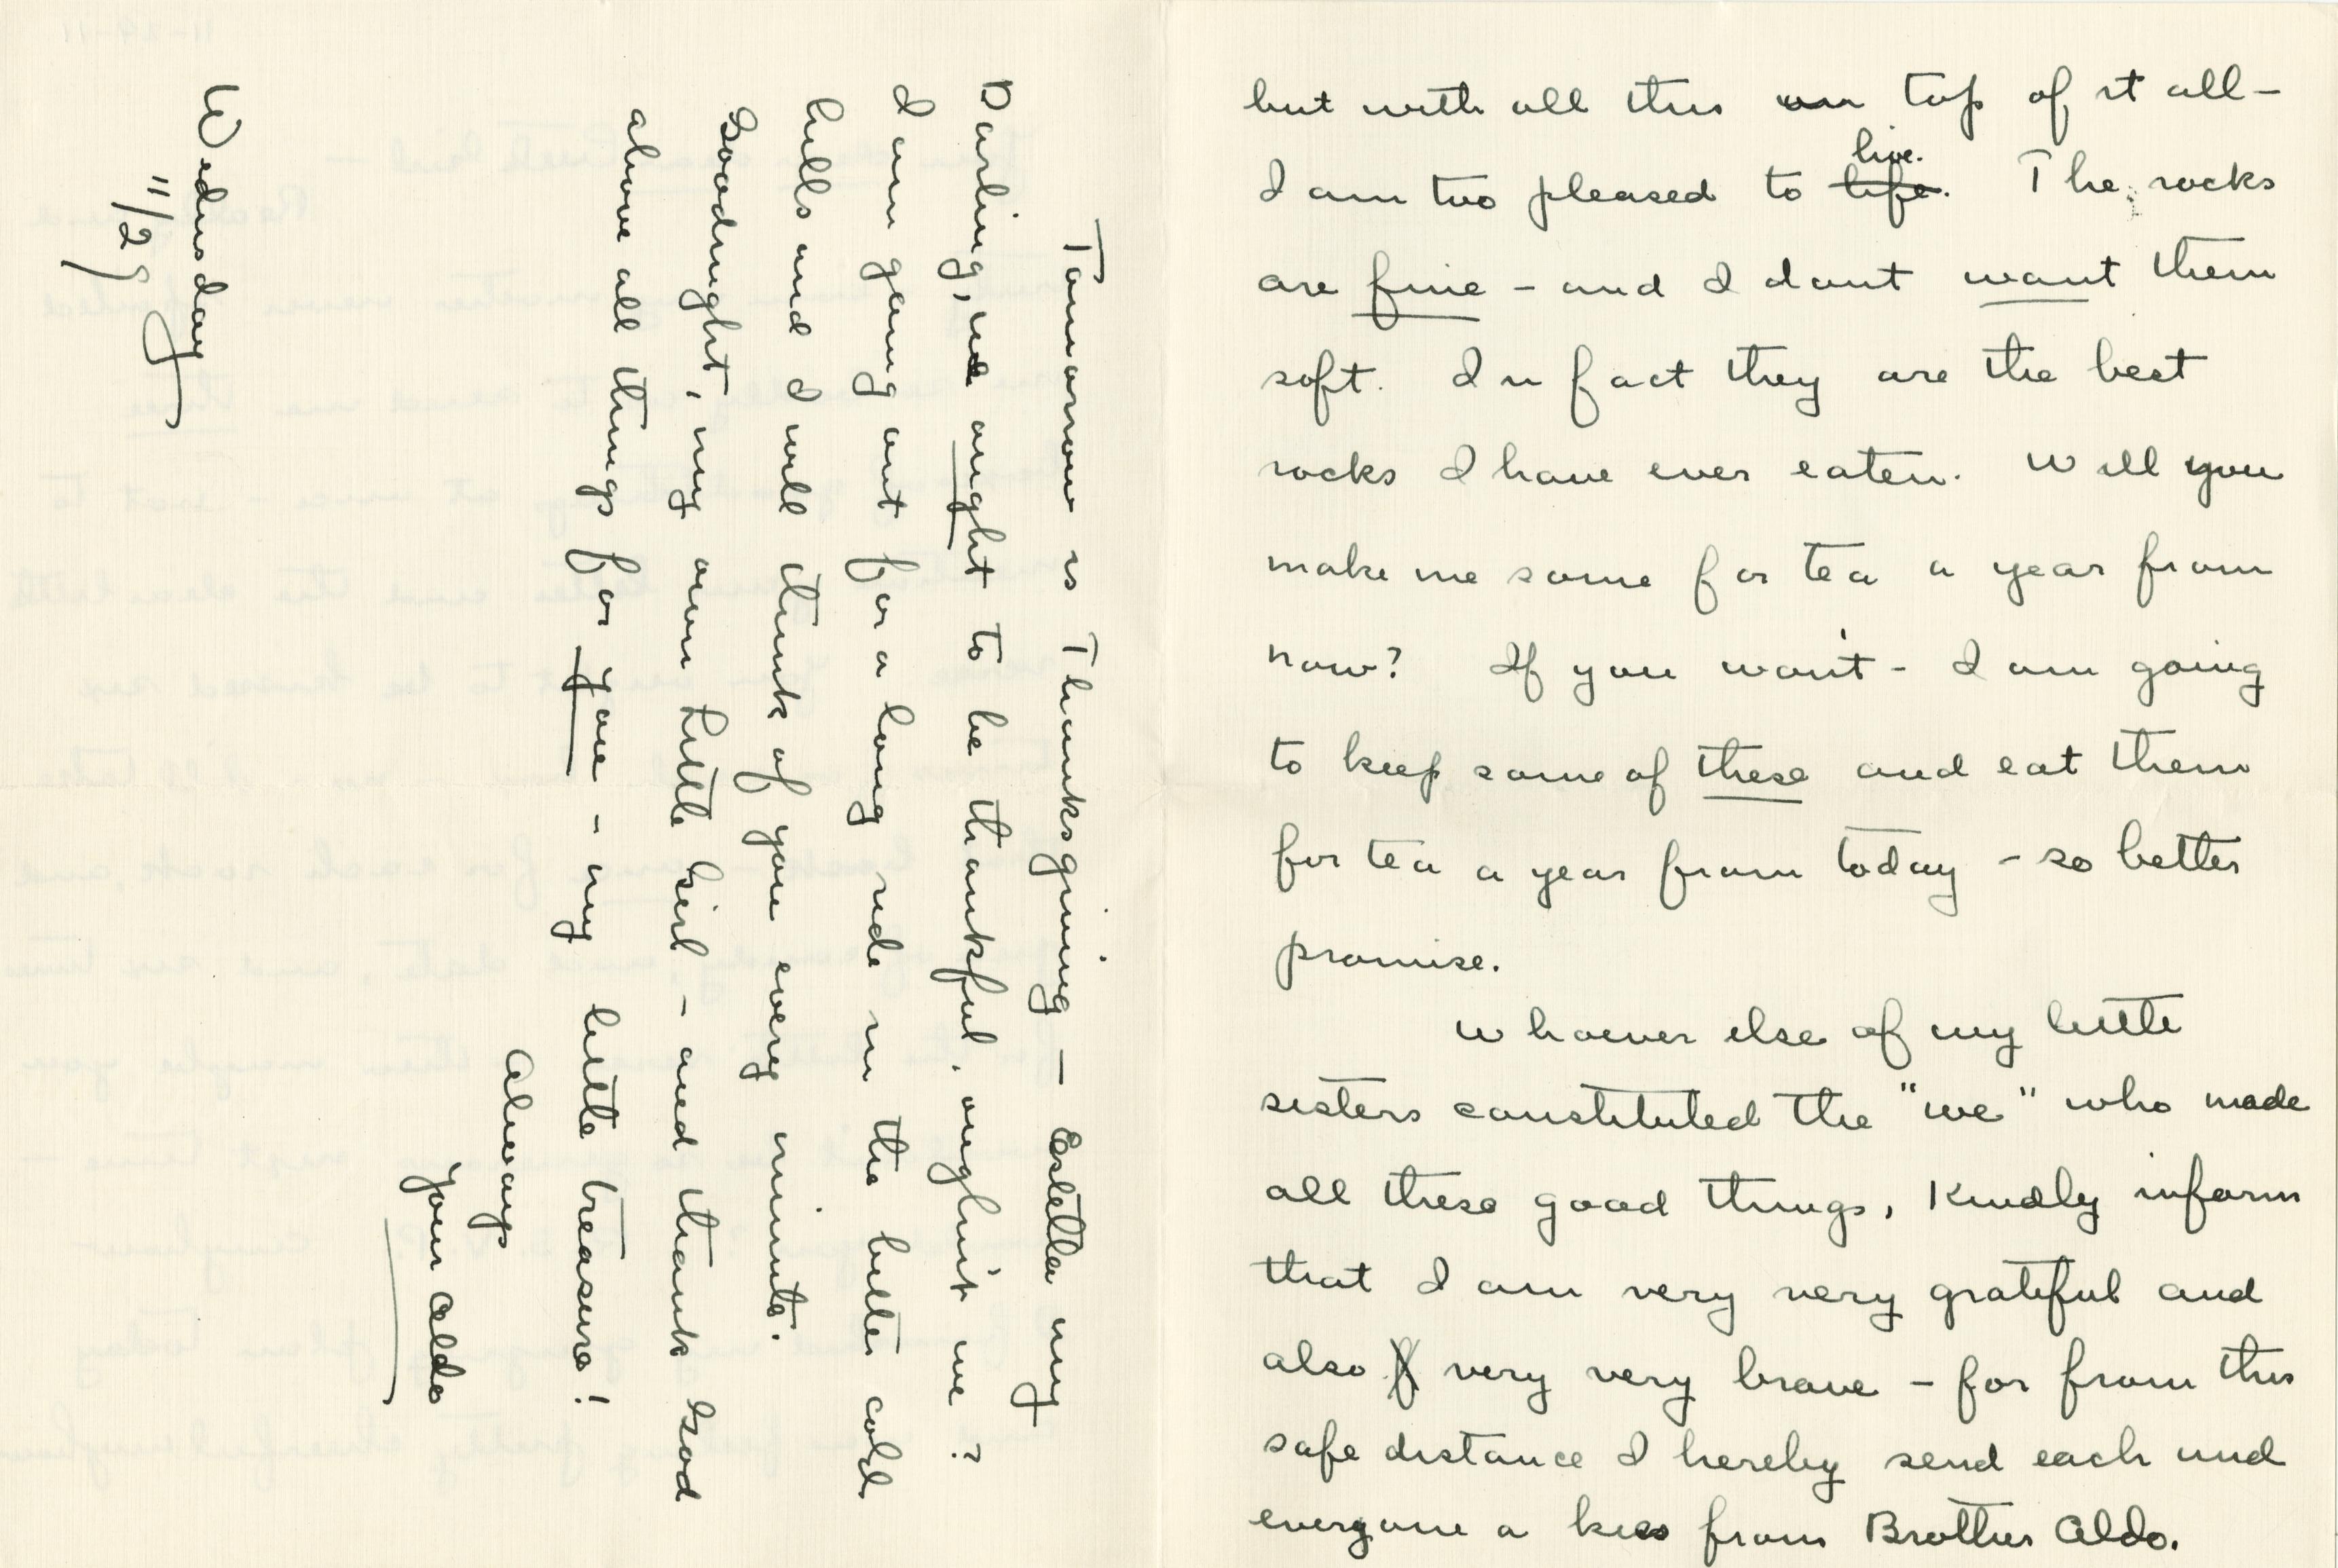 but with all this on top of it all—
I am two pleased to life. live. The rocks
are fine – and I dont want them
soft. In fact they are the best
rocks I have ever eaten. Will you
make me some for tea a year from
now? If you won't – I am going
to keep some of these and eat them
for tea a year from today – so better
promise.
Whoever else of my little
sisters constituted the "we" who made
all these good things, Kindly inform
that I am very very grateful and
also very very brave – for from this
safe distance I hereby send each und
everyone a kiss from Brother Aldo.
Tomorrow is Thanksgiving — Estella my
Darling, we ought to be thankful, oughn't we?
I am going out for a long ride in the bitter cold
hills and I will think of you every minute.
Goodnight, my own Little Girl – and thank God
above all things for you – my little treasure!
Always
your Aldo
Wednesday
11/29